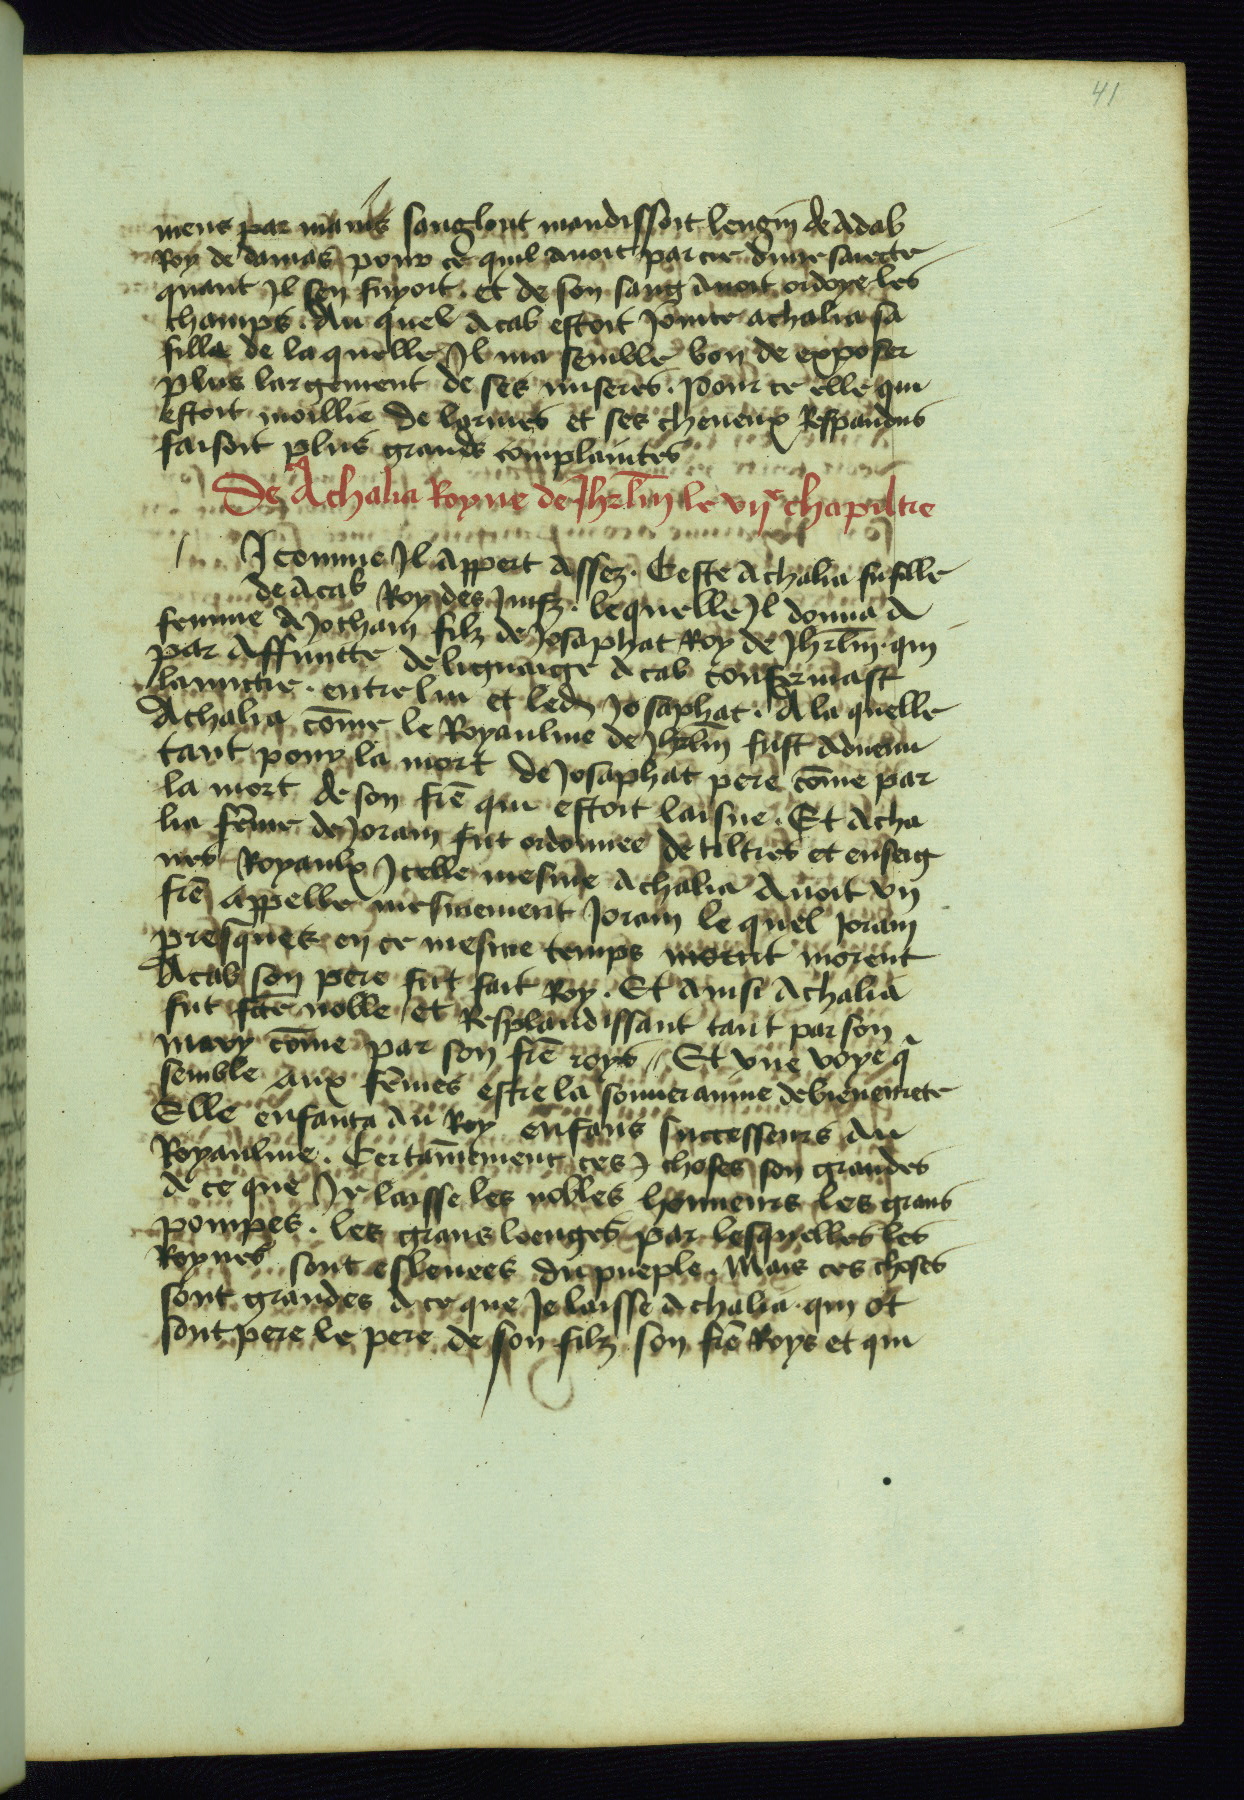 41
mens par mains sanglent maudissoit lengin de Adab
Roy de damas pour ce quil auoit parcie dune saiecte
quant Il sen fuyoit. et de son sang auoit ordoye les
champs. Au quel Acab estoit Joincte achalia sa
fille de la quelle Il ma semble bon de exposer
plus largement de ses miseres. Pour ce elle qui
estoit moillie de larmes et ses cheueux Respandus
faisoit plus grands complaintes
De Achalia Royne de Jhrlm le vije chapiltre
I comme Il Appert Assez. Ceste Achalia fu fille
de Acab Roy des Juifz. lequelle Il donna A
femme A Jotham filz de Josaphat Roy de Jhrlm. qui
par Affinitte de lignaige Acab confermast
lamictie. entre lui et led Josaphat. A la quelle
Achalia cõme le Royaulme de Jhrlm fust Aduenu
tant pour la mort de Josaphat pere cõme par
la mort de son frẽ qui estoit laisne. Et Acha
lia fẽme de Joram fut ordonnee de tiltres et enseig
nes Royaulx Icelle mesme Achalia Auoit vn
frẽ appelle mesmement Joram le quel Joram
presques en ce mesme temps morut morent
Acab son pere fut fait Roy. Et Ainsi Achalia
fut fcẽ noble et Resplandissant tant par son
mary cõme par son frẽ roys // Et vne voye q̃
semble aux fẽmes estre la souuerainne debieneurete
Elle enfanta Au Roy enfans successeurs Au
Royaulme. Certainnement ces choses son grandes
de ce que Je laisse les nobles honneurs les grans
pompes. les grans loenges par lesquelles les
Roynes sont esleuees du pueple. Mais ces choses
sont grandes A ce que Je laisse Achalia. qui ot
sont pere le pere de son filz son frẽ Roys et qui